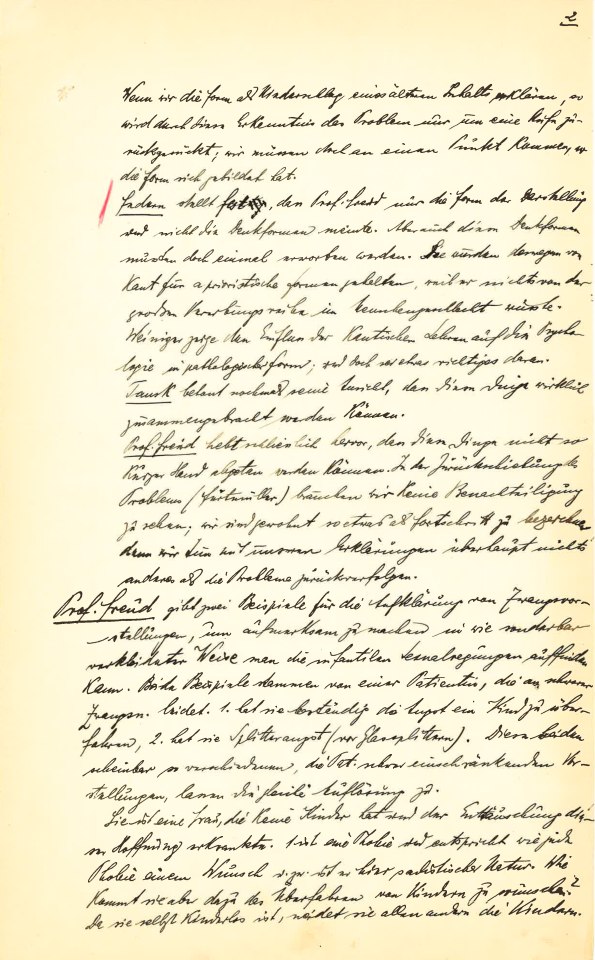 2
Wenn wir die Form als Niederschlag eines älteren Inhalts erklären, so
wird durch diese Erkenntnis das Problem nur um eine Stufe zu-
rückgerückt; wir müssen doch an einen Punkt kommen, wo
die Form sich gebildet hat.
Federn stellt fest, dass Prof. Freud nur die Form der Darstellung
und nicht die Denkformen meinte. Aber auch diese Denkformen
mussten doch einmal erworben werden. Sie wurden deswegen von
Kant für aprioristische Formen gehalten, weil er nichts von der
großen Vererbungsreihe im Menschengeschlecht wusste.
Weininger zeige den Einfluss der Kantischen Lehren auf die Psycho-
logie in pathologischer Form; und doch sei etwas richtiges daran.
Tausk betont nochmals seine Ansicht, dass diese Dinge wirklich
zusammengebracht werden können.
Prof. Freud hebt schliesslich hervor, dass diese Dinge nicht so
kurzer Hand abgetan werden können. In der Zurückschiebung des
Problems (Furtmüller) brauchen wir keine Benachteiligung
zu sehen; wir sind gewohnt so etwas als Fortschritt zu bezeichnen
denn wir tun mit unseren Erklärungen überhaupt nichts
anderes als die Probleme zurückverfolgen.
Prof. Freud gibt zwei Beispiele für die Aufklärung von Zwangsvor-
stellungen, um aufmerksam zu machen in wie sonderbar
verkleideter Weise man die infantilen Sexualregungen auffinden
kann. Beide Beispiele stammen von einer Patientin, die an schwerer
Zwangsn. leidet. 1. hat sie beständig die Angst ein Kind zu über-
fahren, 2. hat sie Splitterangst (vor Glassplittern). Diese beiden
scheinbar so verschiedenen, die Pat. schwer einschränkenden Vor-
stellungen, lassen die gleiche Auflösung zu.
Sie ist eine Frau, die keine Kinder hat und der Enttäuschung die-
ser Hoffnung erkrankte. 1. ist eine Phobie und entspricht wie jede
Phobie einem Wunsch u. zw. ist er hier sadistischer Natur. Wie
kommt sie aber dazu das Überfahren von Kindern zu wünschen?
Da sie selbst kinderlos ist, neidet sie allen andern die Kinder.